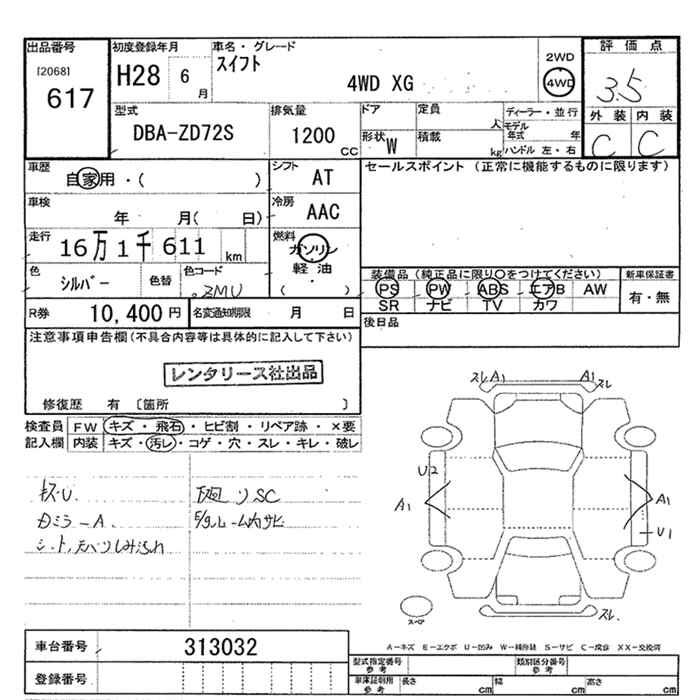 出品番号
[2068]
617
初度登録年月
H28 6 月
車名・グレード
スイフト
4WD XG
2WD
4WD
評価点
3.5
外装 内装
C C
型式
DBA-ZD72S
排気量
1200 CC
ドア
定員
人
形状 W
積載
kg
ディーラー・並行
モデル年式 年
ハンドル 左・右
車歴
自家用・( )
シフト
AT
車検
年 月( 日)
冷房
AAC
走行
16万1千611 km
燃料
ガソリン
軽油
( ・ )
色
シルバー
色替
色コード
ZMU
R券 10,400 円
名変通知期限 月 日
セールスポイント (正常に機能するものに限ります)
装備品(純正品に限り〇をつけてください)
PS PW ABS エアB AW
SR ナビ TV カワ
新車保証書
有・無
後日品
注意事項申告欄(不具合内容等は具体的に記入して下さい)
レンタリース社出品
修復歴 有 〔箇所 〕
検査員記入欄
FW キズ・飛石・ヒビ割・リペア跡・×要
内装 キズ・汚レ・コゲ・穴・スレ・キレ・破レ
下廻りSC
シート,天バリしみ汚れ
スレ A1
A1 スレ
U2
A1
A1
U1
スペア
スレ
A-キズ E-エクボ U-凹み W-補修跡 S-サビ C-腐食 XX-交換済
車台番号 313032
登録番号
型式指定番号 参考
類別区分番号 参考
車庫証明用 参考
長さ cm
幅 cm
高さ cm